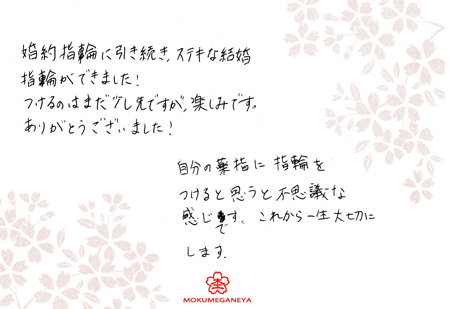 婚約指輪に引き続き、ステキな結婚
指輪ができました!
つけるのはまだ少し先ですが、楽しみです。
ありがとうございました!
自分の薬指に指輪を
つけると思うと不思議な
感じです。これから一生大切に
します。
MOKUMEGANEYA